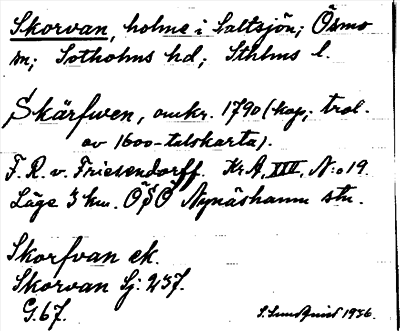 Skorvan, holme i Saltsjön; Ösmo
sn; Sotholms hd; Sthlms l.
Skärfwen, omkr. 1790 (kop; trol.
av 1600-talskarta).
F. R. v. Friesendorff. Kr.A, XIII, N:o 19.
Läge 3 km. ÖSÖ Nynäshamn stn.
Skorfvan ek.
Skorvan Sj: 237.
G.67.
S. Lundquist 1936.